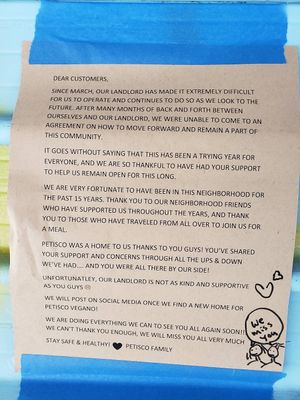 DEAR CUSTOMERS,
SINCE MARCH, OUR LANDLORD HAS MADE IT EXTREMELY DIFFICULT
FOR US TO OPERATE AND CONTINUES TO DO SO AS WE LOOK TO THE
FUTURE. AFTER MANY MONTHS OF BACK AND FORTH BETWEEN
OURSELVES AND OUR LANDLORD, WE WERE UNABLE TO COME TO AN
AGREEMENT ON HOW TO MOVE FORWARD AND REMAIN A PART OF
THIS COMMUNITY.
IT GOES WITHOUT SAYING THAT THIS HAS BEEN A TRYING YEAR FOR
EVERYONE, AND WE ARE SO THANKFUL TO HAVE HAD YOUR SUPPORT
TO HELP US REMAIN OPEN FOR THIS LONG.
WE ARE VERY FORTUNATE TO HAVE BEEN IN THIS NEIGHBORHOOD FOR
THE PAST 15 YEARS. THANK YOU TO OUR NEIGHBORHOOD FRIENDS
WHO HAVE SUPPORTED US THROUGHOUT THE YEARS, AND THANK
YOU TO THOSE WHO HAVE TRAVELED FROM ALL OVER TO JOIN US FOR
A MEAL.
PETISCO WAS A HOME TO US THANKS TO YOU GUYS! YOU'VE SHARED
YOUR SUPPORT AND CONCERNS THROUGH ALL THE UPS & DOWN
WE'VE HAD.... AND YOU WERE ALL THERE BY OUR SIDE!
UNFORTUNATLEY, OUR LANDLORD IS NOT AS KIND AND SUPPORTIVE
AS YOU GUYS ☹
WE WILL POST ON SOCIAL MEDIA ONCE WE FIND A NEW HOME FOR
PETISCO VEGANO!
WE ARE DOING EVERYTHING WE CAN TO SEE YOU ALL AGAIN SOON!!
WE CAN'T THANK YOU ENOUGH, WE WILL MISS YOU ALL VERY MUCH
STAY SAFE & HEALTHY! ♥ PETISCO FAMILY
We
miss
you